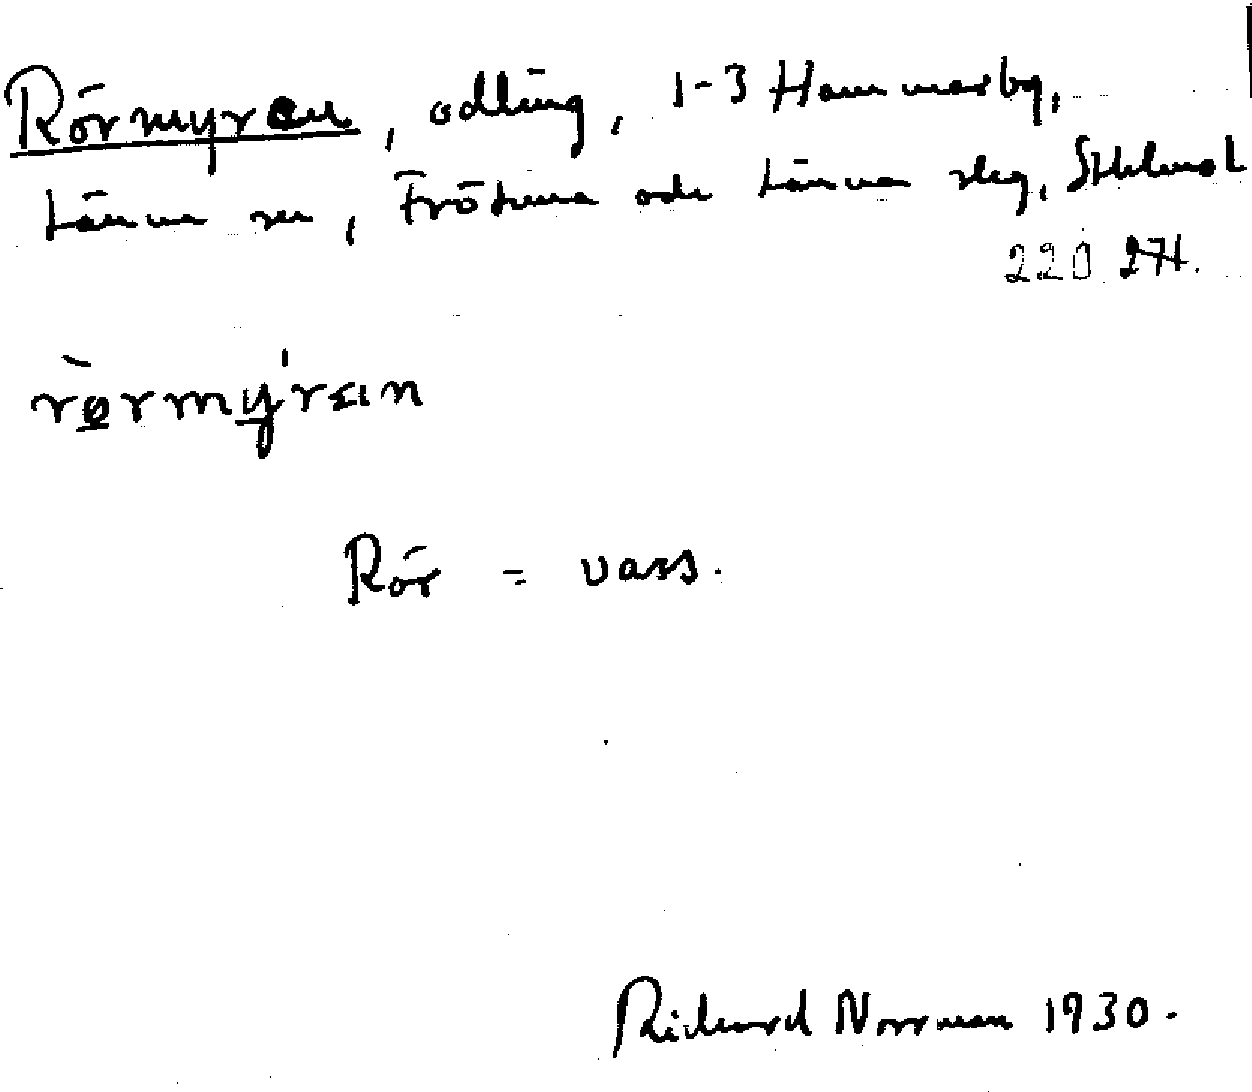 Rörmyren, odling, 1-3 Hammarby,
Länna sn, Frötuna och Länna slg, Sthlms l
220 274.
rørmy'rɛın
Rör = vass.
Richard Norrman 1930.